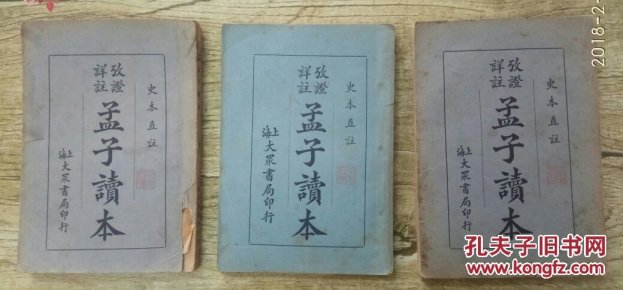 史本直註
攷證
詳註
孟子讀本
上海大眾書局印行
史本直註
攷證
詳註
孟子讀本
上海大眾書局印行
史本直註
攷證
詳註
孟子讀本
上海大眾書局印行
2018-2-
孔夫子旧书网
www.kongfz.com